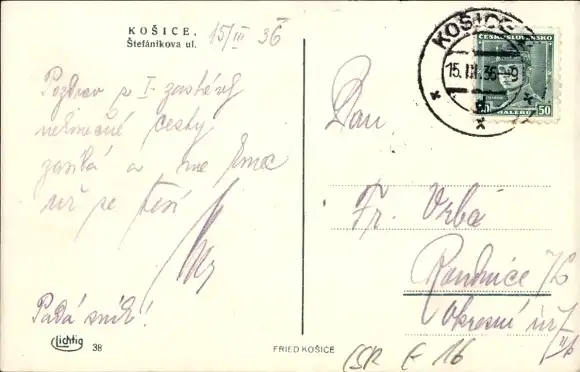 KOŠICE.
Štefánikova ul.
15/III 36
KOŠICE
15.III.36-9
ČESKOSLOVENSKO
50
HALÉŘŮ
50
Pozdrav s I. zastávky
cesty
zasílá a
už se těší
Padá sníh!
Pan
Fr. Vrba
Roudnice
Okresní úř.
Lichtig
38
FRIED KOŠICE
ČSR E 16